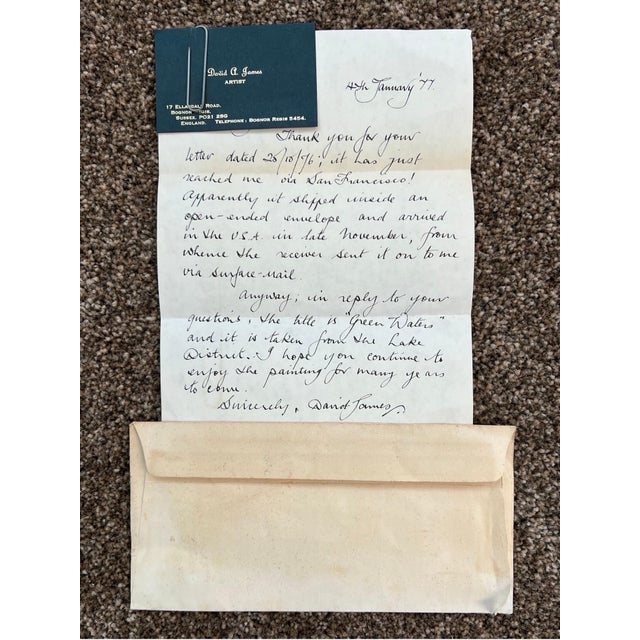 David A. James
ARTIST
17 Road,
Bognor
Sussex. PO21 2SG
England. Telephone: Bognor Regis 5454.
4th January '77.
Thank you for your
letter dated 20/10/76; it has just
reached me via San Francisco!
Apparently it slipped inside an
open-ended envelope and arrived
in the U.S.A. in late November, from
whence the receiver sent it on to me
via surface-mail.
Anyway; in reply to your
questions, the title is "Green Waters"
and it is taken from the Lake
District. I hope you continue to
enjoy the painting for many years
to come.
Sincerely, David James.